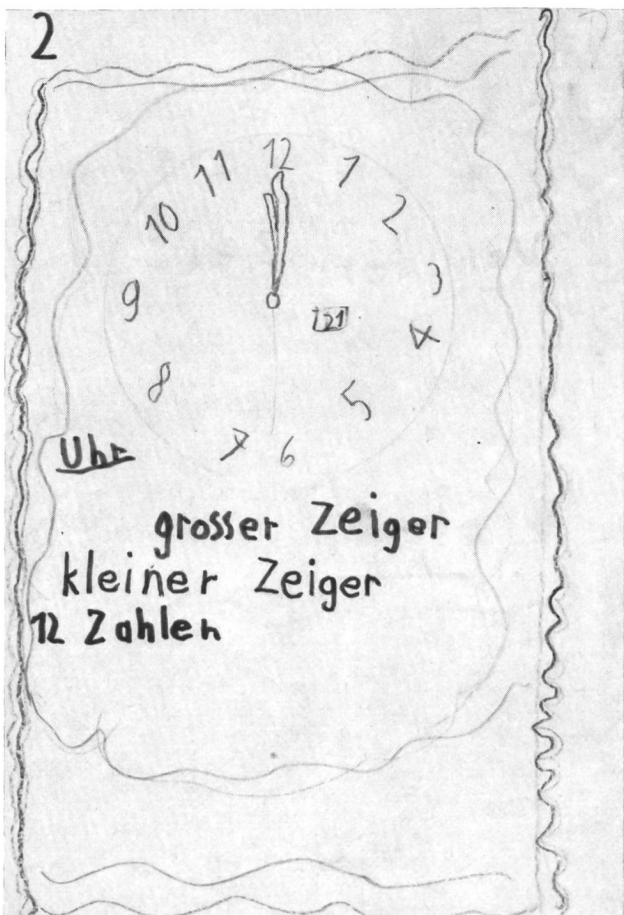 2
12
11 1
10 2
9 3
21
4
8 5
7 6
Uhr
grosser Zeiger
kleiner Zeiger
12 Zahlen